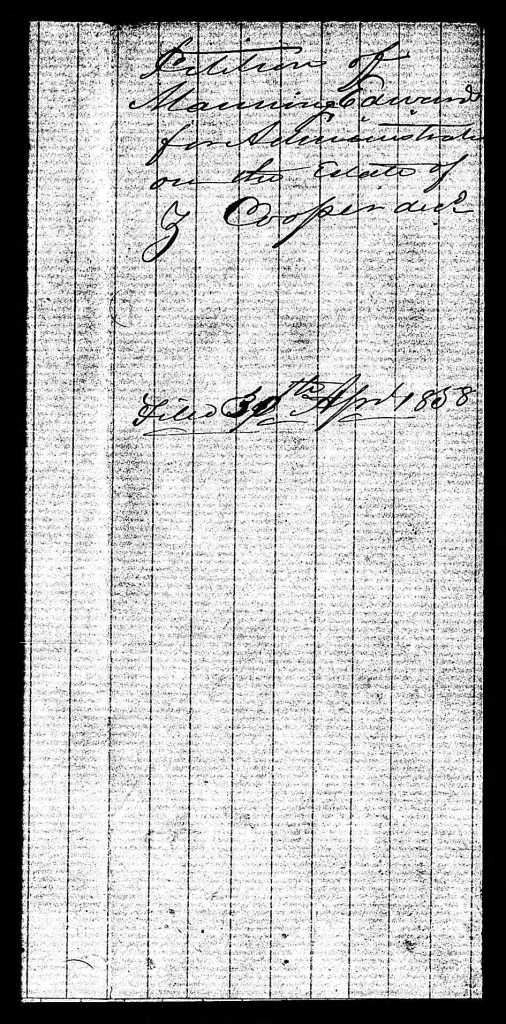 Petition of
Manning Edwards
for Administratio
on the Estate of
Z Cooper decd
Filed 30th Aprl 1858